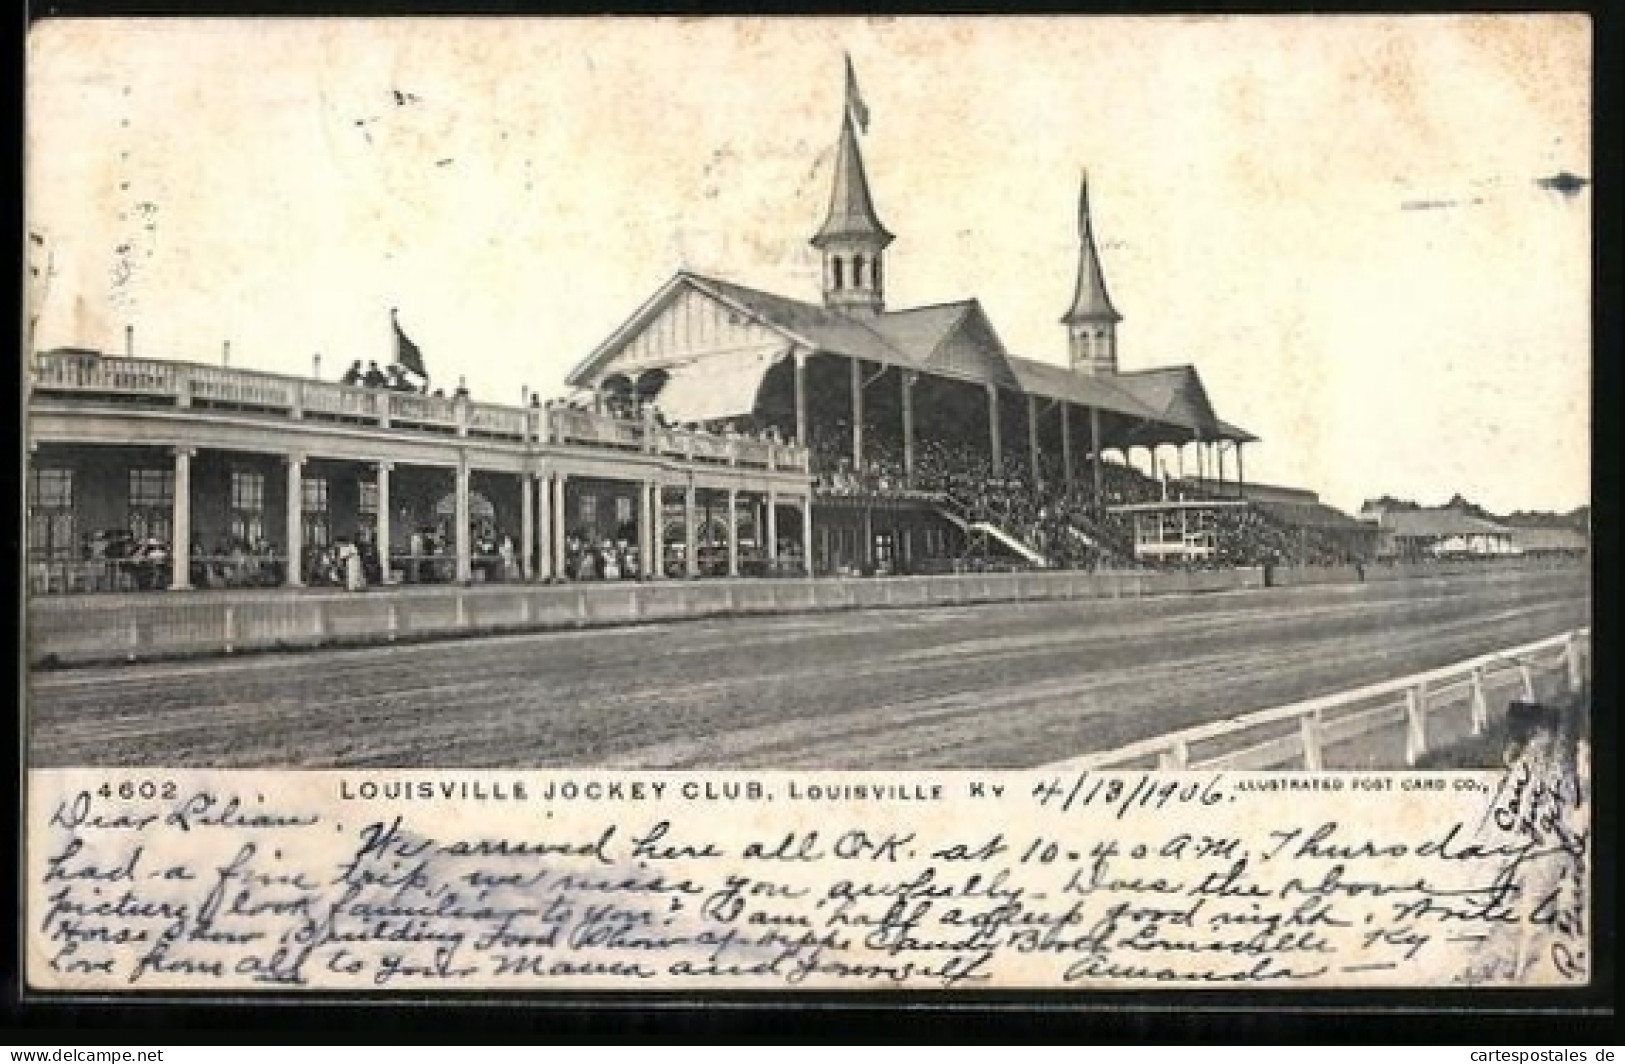 4602 LOUISVILLE JOCKEY CLUB, LOUISVILLE KY 4/13/1906. ILLUSTRATED POST CARD CO.,
Dear Lilian,
We arrived here all O.K. at 10.40 A.M. Thursday
had a fine trip, we miss you awfully - Does the above
picture look familiar to you? I am half asleep good night. Write to
Horse Show Building Food Show Candy Booth Louisville Ky -
Love from all to your Mama and yourself Amanda -
Can
you